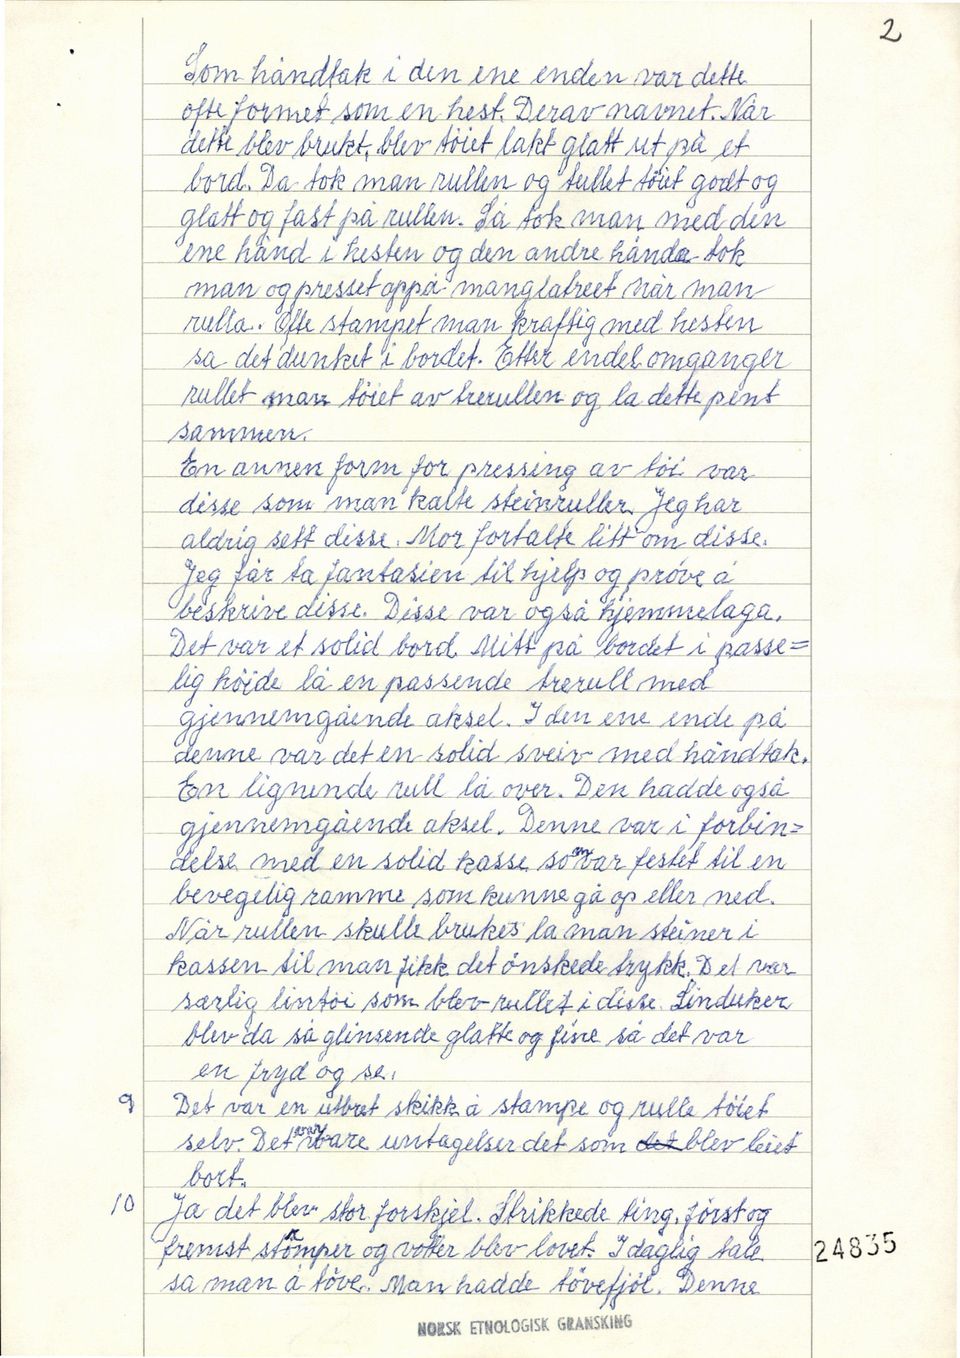 2
Som håndtak i den ene enden var dette
ofte formet som en hest. Derav navnet. Når
dette blev brukt, blev töiet lakt glatt ut på et
bord. Da tok man rullen og tullet töiet godt og
glatt og fast på rullen. Så tok man med den
ene hånd i hesten og den andre hånda tok
man og presset oppå manglatreet når man
rulla. Ofte stampet man kraftig med hesten
sa det dunket i bordet. Etter endel omganger
rullet man töiet av trerullen og la dette pent
sammen.
En annen form for pressing av töi var
disse som man kalte steinruller. Jeg har
aldrig sett disse. Mor fortalte litt om disse.
Jeg får ta fantasien til hjelp og pröve å
beskrive disse. Disse var også hjemmelaga.
Det var et solid bord. Mitt på bordet i passe=
lig höide lå en passende trerull med
gjennemgående aksel. I den ene ende på
denne var det en solid sveiv med håndtak.
En lignende rull lå over. Den hadde også
gjennemgående aksel. Denne var i forbin=
delse med en solid kasse som var festet til en
bevegelig ramme som kunne gå op eller ned.
Når rullen skulle brukes la man steiner i
kassen til man fikk det önskede trykk. Det var
særlig lintöi som blev rullet i disse. Linduker
blev da så glinsende glatte og fine så det var
en fryd og se.
9 Det var en utbret skikk å stampe og rulle töiet
selv. Det var bare untagelser det som det blev leiet
bort.
10 Ja det blev stor forskjel. Strikkede ting, först og
fremst strömper og votter blev lovet. I daglig tale
sa man å töve. Man hadde tövefjöl. Denne
24835
NORSK ETNOLOGISK GRANSKING